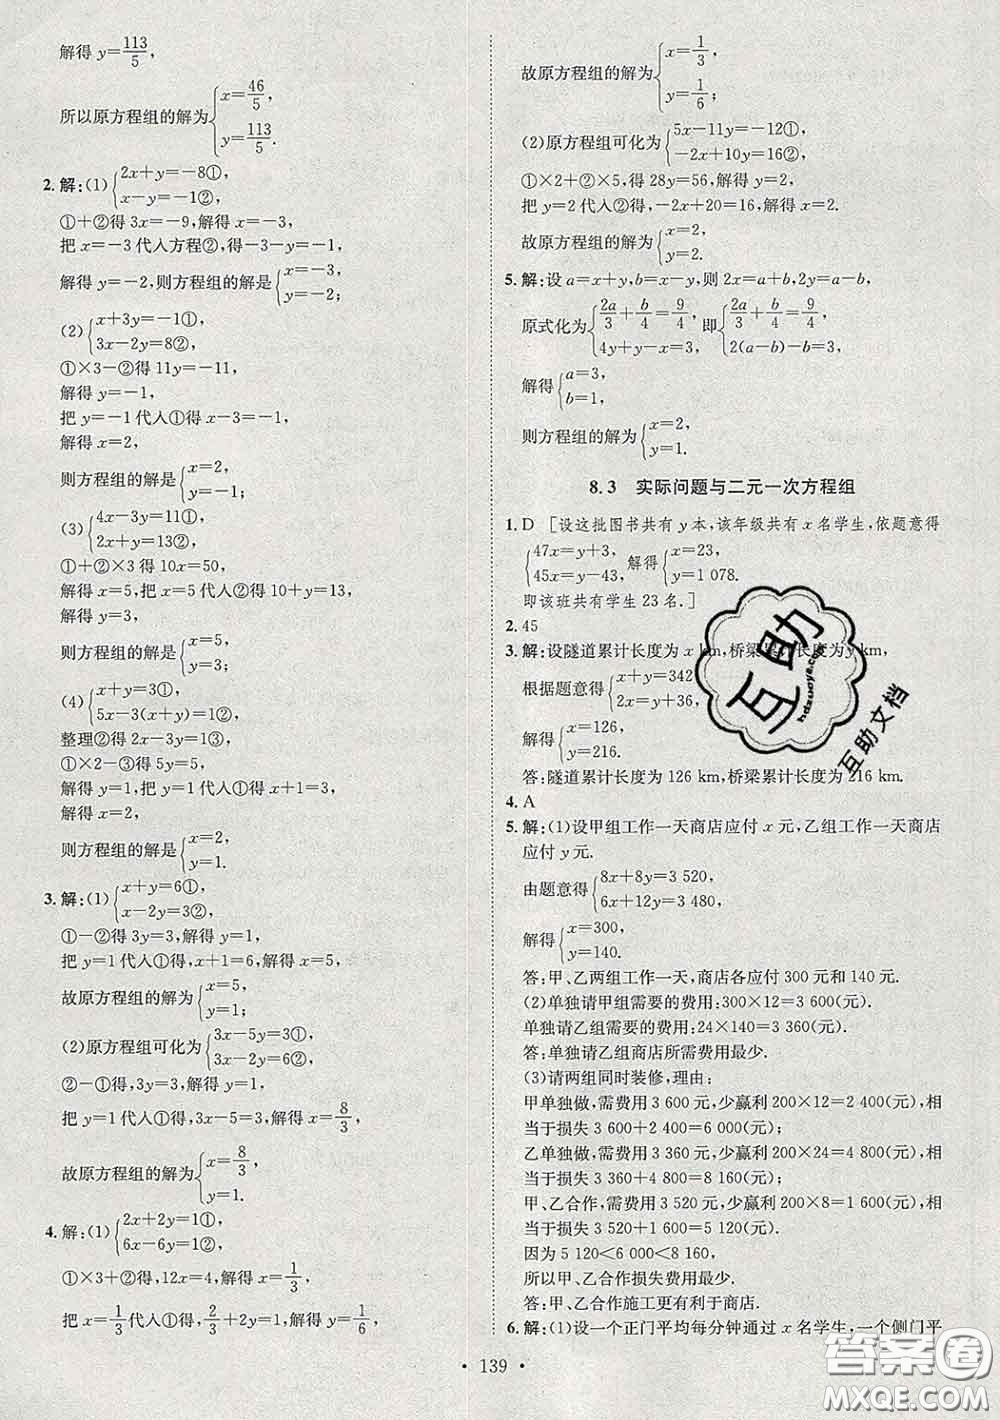 解得 y=113/5,
所以原方程组的解为{x=46/5, y=113/5.
2. 解:(1){2x+y=-8①, x-y=-1②,
①+②得 3x=-9,解得 x=-3,
把 x=-3 代入方程②,得-3-y=-1,
解得 y=-2,则方程组的解是{x=-3, y=-2;
(2){x+3y=-1①, 3x-2y=8②,
①×3-②得 11y=-11,
解得 y=-1,
把 y=-1 代入①得 x-3=-1,
解得 x=2,
则方程组的解是{x=2, y=-1;
(3){4x-3y=11①, 2x+y=13②,
①+②×3 得 10x=50,
解得 x=5,把 x=5 代入②得 10+y=13,
解得 y=3,
则方程组的解是{x=5, y=3;
(4){x+y=3①, 5x-3(x+y)=1②,
整理②得 2x-3y=1③,
①×2-③得 5y=5,
解得 y=1,把 y=1 代入①得 x+1=3,
解得 x=2,
则方程组的解是{x=2, y=1.
3. 解:(1){x+y=6①, x-2y=3②,
①-②得 3y=3,解得 y=1,
把 y=1 代入①得,x+1=6,解得 x=5,
故原方程组的解为{x=5, y=1;
(2)原方程组可化为{3x-5y=3①, 3x-2y=6②,
②-①得,3y=3,解得 y=1,
把 y=1 代入①得,3x-5=3,解得 x=8/3,
故原方程组的解为{x=8/3, y=1.
4. 解:(1){2x+2y=1①, 6x-6y=1②,
①×3+②得,12x=4,解得 x=1/3,
把 x=1/3代入①得,2/3+2y=1,解得 y=1/6,
故原方程组的解为{x=1/3, y=1/6;
(2)原方程组可化为{5x-11y=-12①, -2x+10y=16②,
①×2+②×5,得 28y=56,解得 y=2,
把 y=2 代入②得,-2x+20=16,解得 x=2.
故原方程组的解为{x=2, y=2.
5. 解:设 a=x+y,b=x-y,则 2x=a+b,2y=a-b,
原式化为{2a/3+b/4=9/4, 4y+y-x=3, 即{2a/3+b/4=9/4, 2(a-b)-b=3,
解得{a=3, b=1,
则方程组的解为{x=2, y=1.
8.3 实际问题与二元一次方程组
1. D [设这批图书共有 y 本,该年级共有 x 名学生,依题意得
{47x=y+3, 45x=y-43, 解得{x=23, y=1 078.
即该班共有学生 23 名.]
2. 45
3. 解:设隧道累计长度为 x km,桥梁累计长度为 y km,
根据题意得{x+y=342 2x=y+36,
解得{x=126, y=216.
答:隧道累计长度为 126 km,桥梁累计长度为 216 km.
4. A
5. 解:(1)设甲组工作一天商店应付 x 元,乙组工作一天商店
应付 y 元.
由题意得{8x+8y=3 520, 6x+12y=3 480,
解得{x=300, y=140.
答:甲、乙两组工作一天,商店各应付 300 元和 140 元.
(2)单独请甲组需要的费用:300×12=3 600(元),
单独请乙组需要的费用:24×140=3 360(元).
答:单独请乙组商店所需费用最少.
(3)请两组同时装修,理由:
甲单独做,需费用 3 600 元,少赢利 200×12=2 400(元),相
当于损失 3 600+2 400=6 000(元);
乙单独做,需费用 3 360 元,少赢利 200×24=4 800(元),相
当于损失 3 360+4 800=8 160(元);
甲、乙合作,需费用 3 520 元,少赢利 200×8=1 600(元),相
当于损失 3 520+1 600=5 120(元).
因为 5 120<6 000<8 160,
所以甲、乙合作损失费用最少.
答:甲、乙合作施工更有利于商店.
6. 解:(1)设一个正门平均每分钟通过 x 名学生,一个侧门平
• 139 •
互助
hdzuoye.com
互助文档
答案圈
MXQE.COM